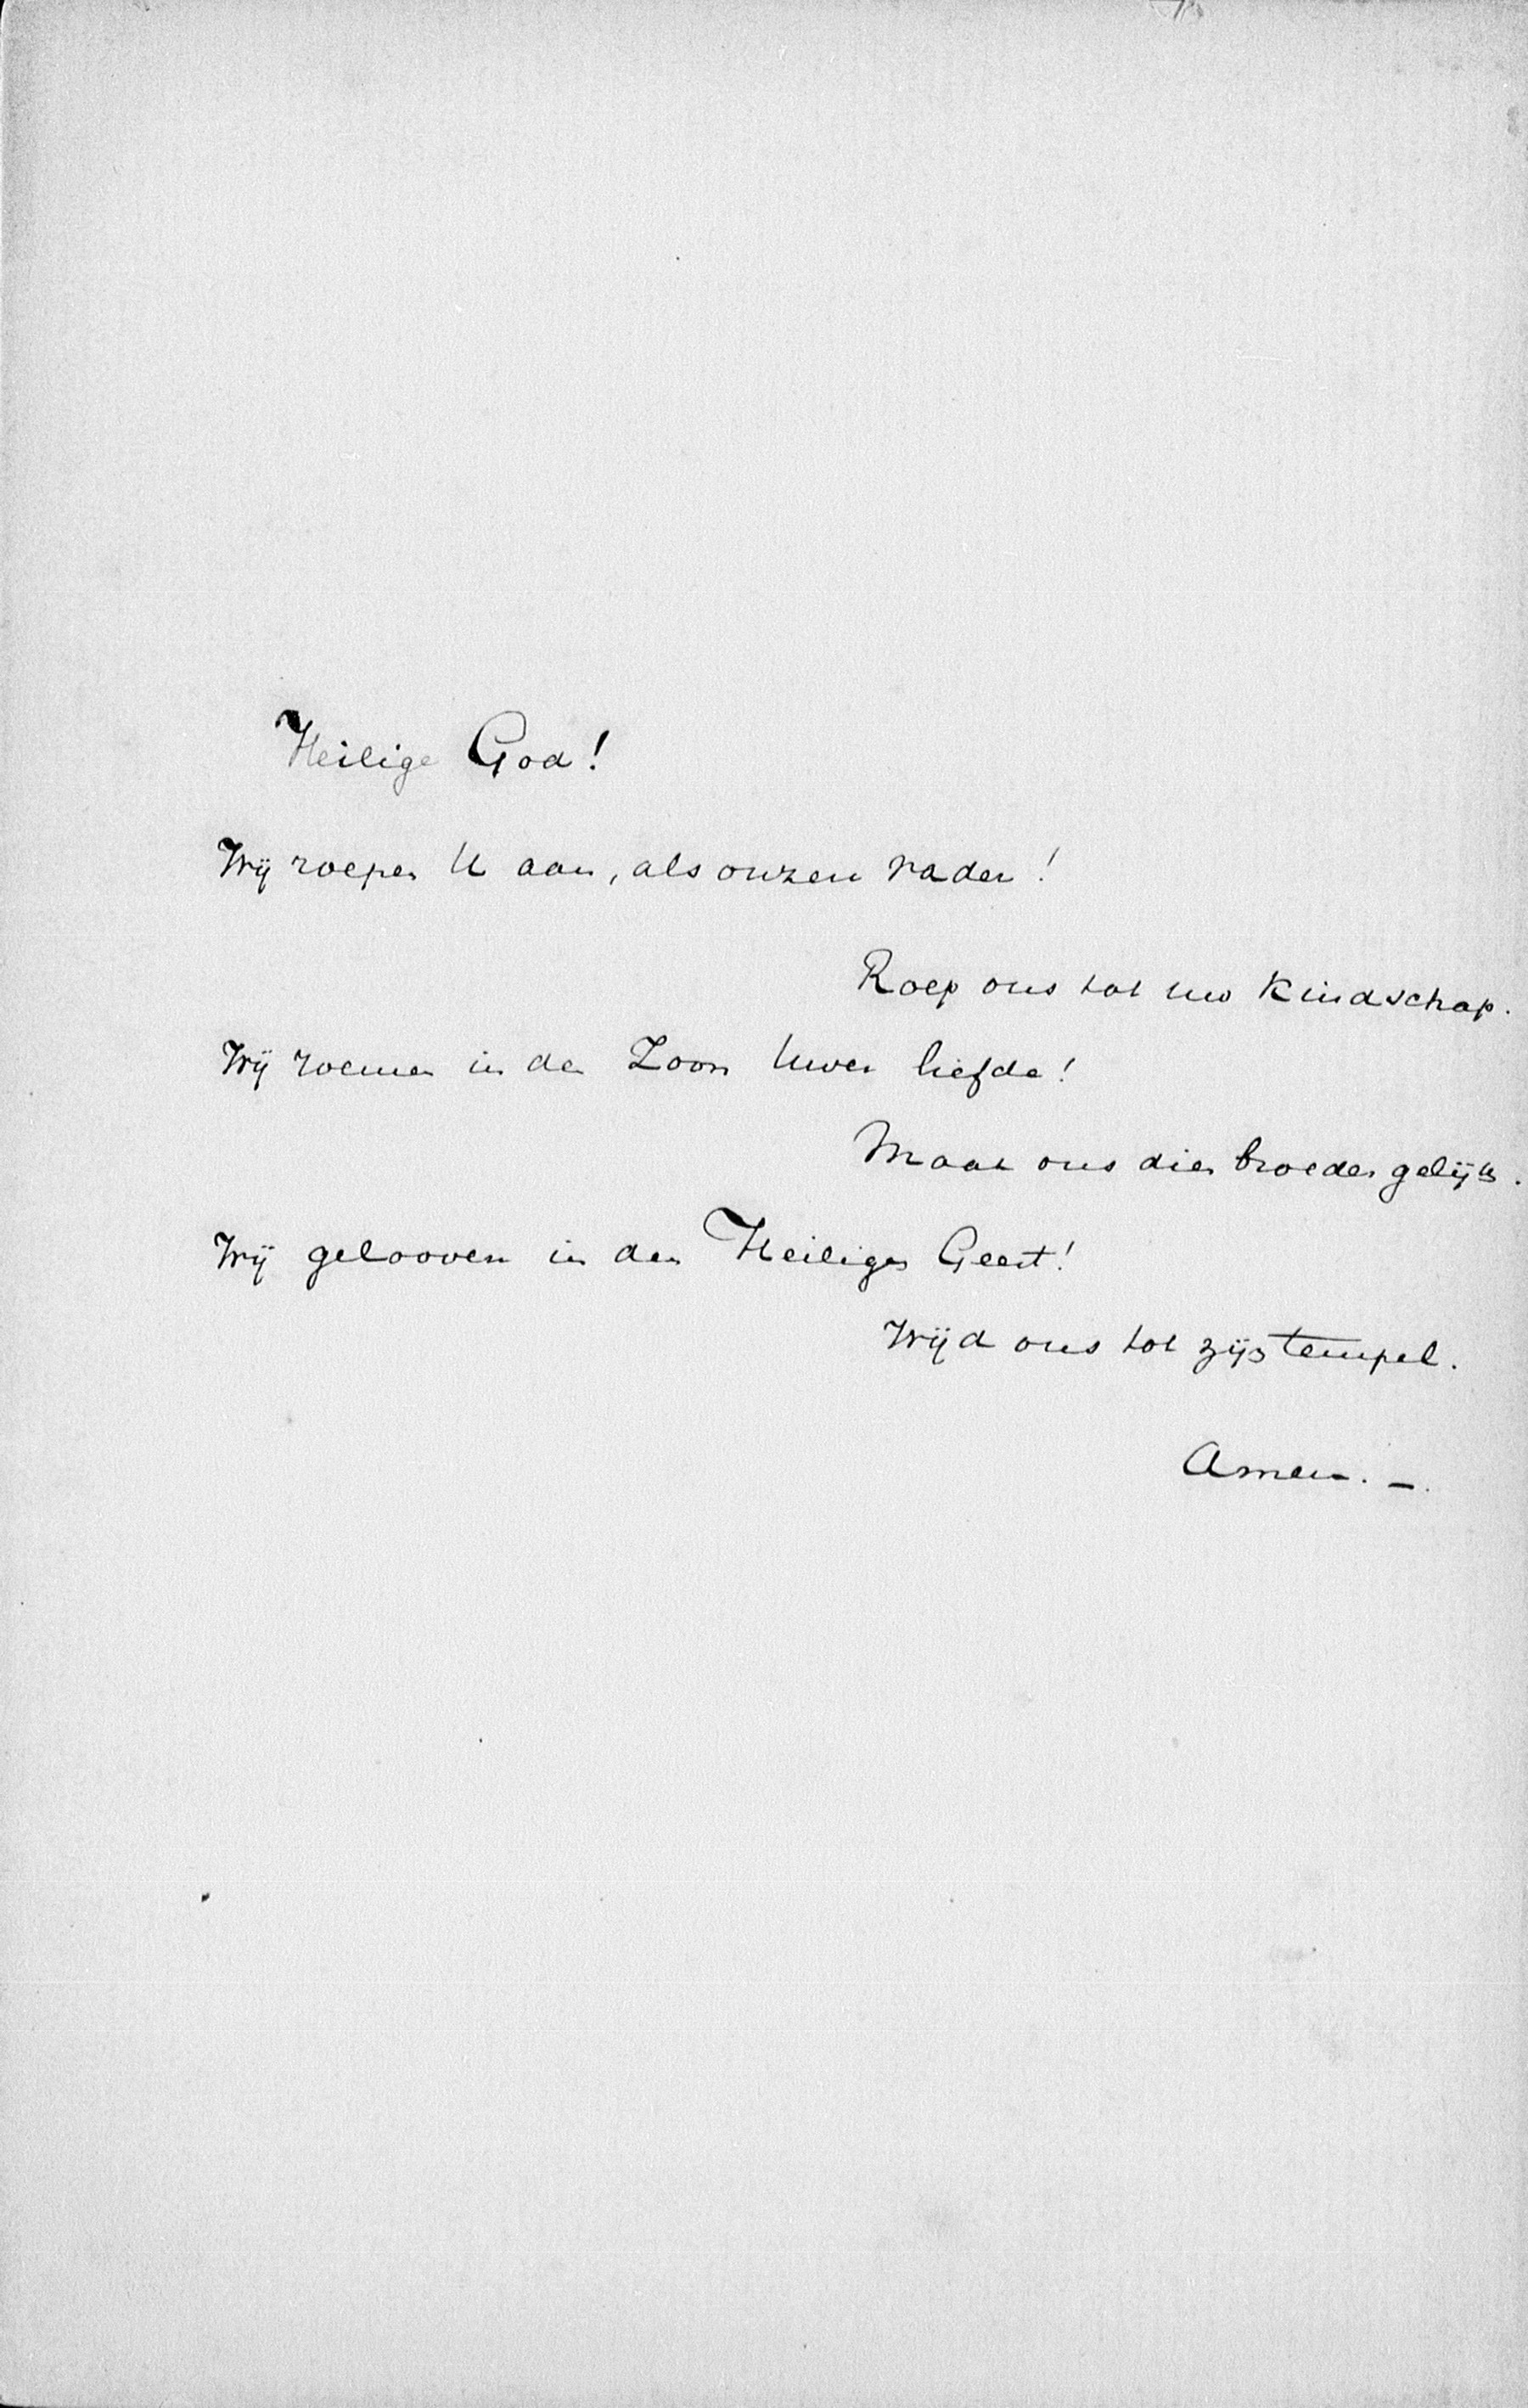 Heilige God!
Wij roepen U aan, als onzen Vader!
Roep ons tot uw Kindschap.
Wij roemen in den Zoon Uwer liefde!
Maak ons dien broeder gelijk.
Wij gelooven in den Heiligen Geest!
Wijd ons tot zijn tempel.
Amen. –.